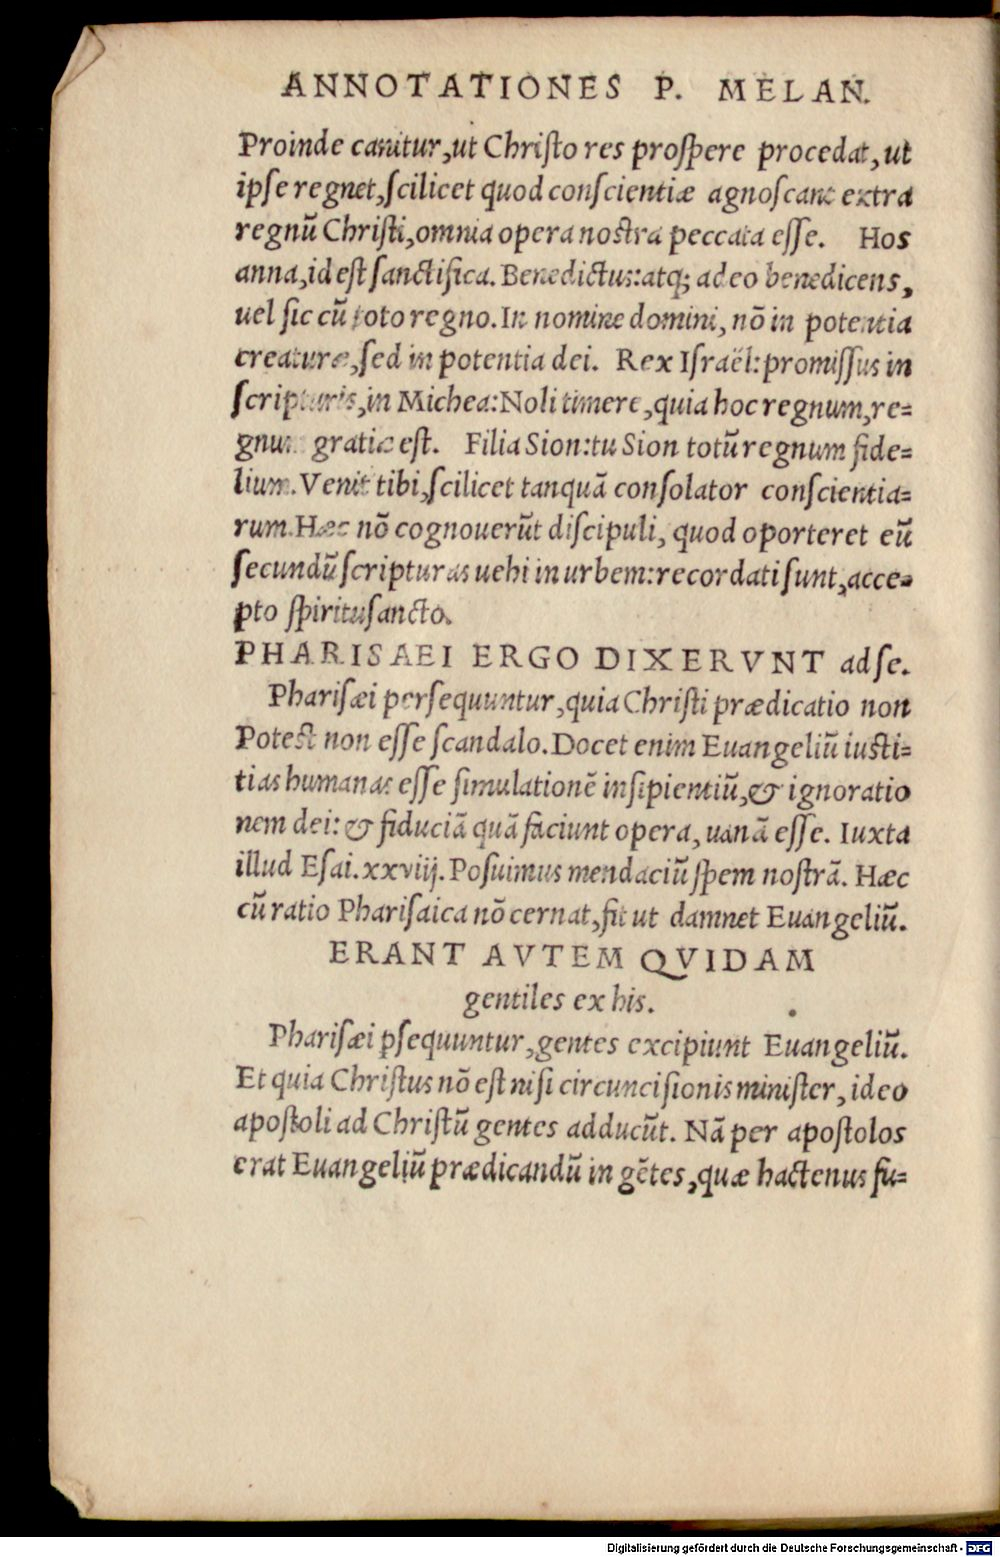 ANNOTATIONES P. MELAN.
Proinde canitur, ut Chriſto res proſpere procedat, ut
ipſe regnet, ſcilicet quod conſcientiæ agnoſcant extra
regnũ Chriſti, omnia opera noſtra peccata eſſe. Hos
anna, id eſt ſanctifica. Benedictus: atq; adeo benedicens,
uel ſic cũ toto regno. In nomine domini, nõ in potentia
creaturæ, ſed in potentia dei. Rex Iſraël: promiſſus in
ſcripturis, in Michea: Noli timere, quia hoc regnum, re=
gnum gratiæ eſt. Filia Sion: tu Sion totũ regnum fide=
lium. Venit tibi, ſcilicet tanquã conſolator conſcientia=
rum. Hæc nõ cognouerũt diſcipuli, quod oporteret eũ
ſecundũ ſcripturas uehi in urbem: recordati ſunt, acce=
pto ſpiritu ſancto.
PHARISAEI ERGO DIXERVNT ad ſe.
Phariſæi perſequuntur, quia Chriſti prædicatio non
Potest non eſſe ſcandalo. Docet enim Euangeliũ iuſti=
tias humanas eſſe ſimulationẽ inſipientiũ, & ignoratio
nem dei: & fiduciã quã faciunt opera, uanã eſſe. Iuxta
illud Eſai. xxviij. Poſuimus mendaciũ ſpem noſtrã. Hæc
cũ ratio Phariſaica nõ cernat, fit ut damnet Euangeliũ.
ERANT AVTEM QVIDAM
gentiles ex his.
Phariſæi ꝑſequuntur, gentes excipiunt Euangeliũ.
Et quia Chriſtus nõ eſt niſi circunciſionis miniſter, ideo
apoſtoli ad Chriſtũ gentes adducũt. Nã per apoſtolos
erat Euangeliũ prædicandũ in gẽtes, quæ hactenus fu=
Digitalisierung gefördert durch die Deutsche Forschungsgemeinschaft - DFG